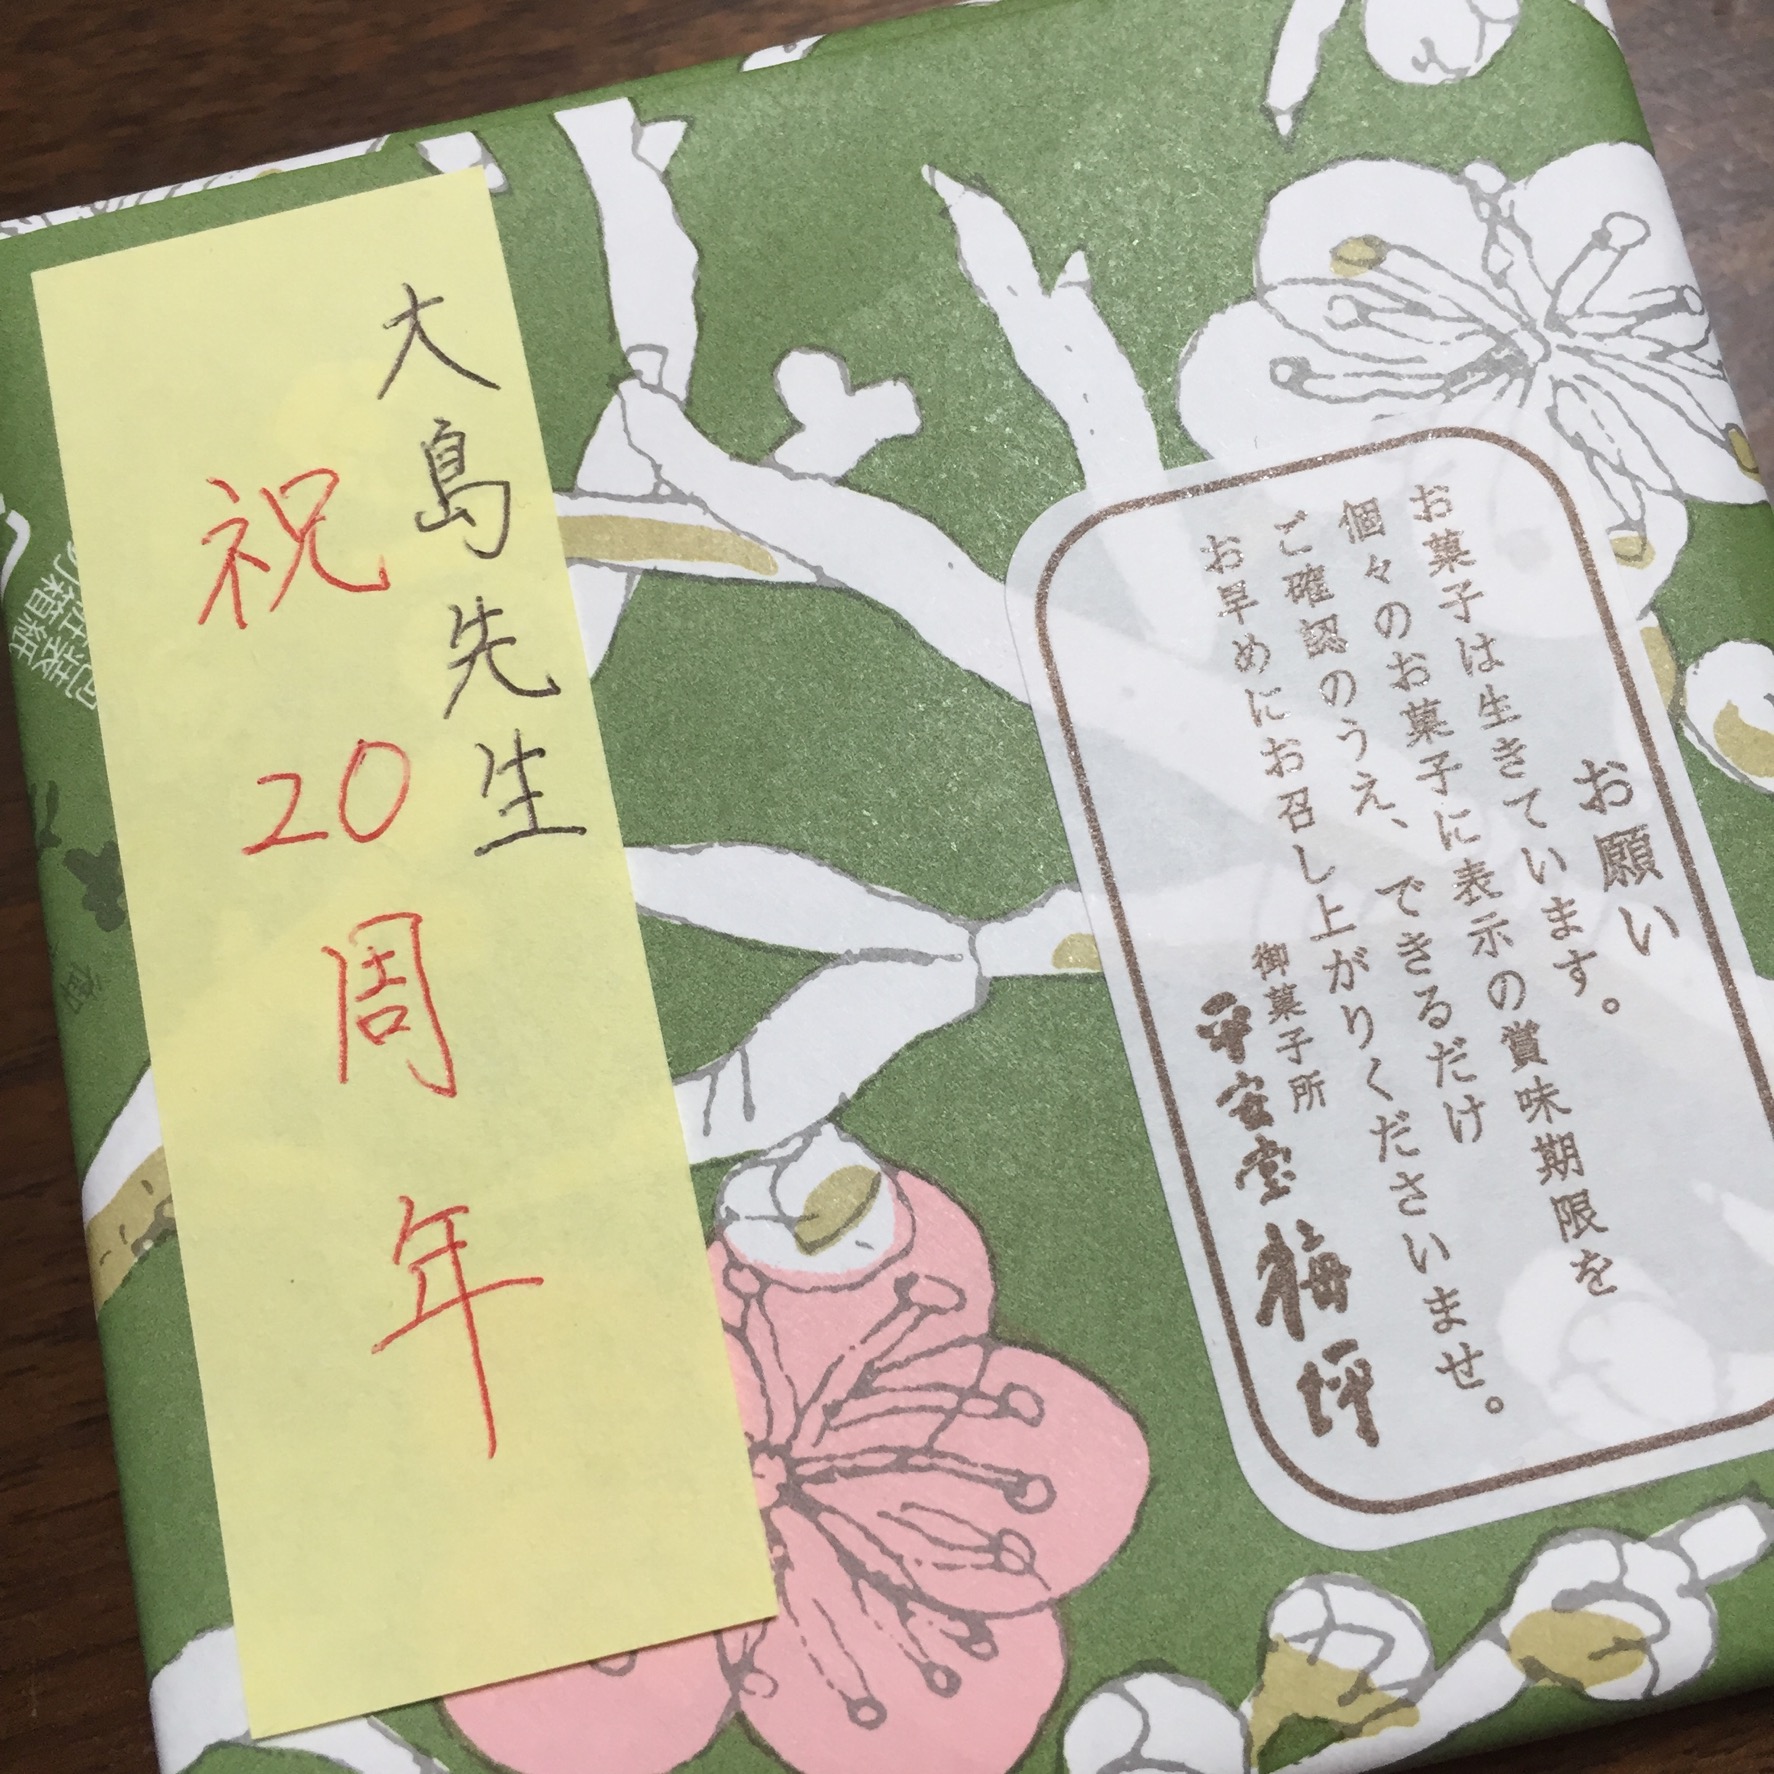 お願い
お菓子は生きています。
個々のお菓子に表示の賞味期限を
ご確認のうえ、できるだけ
お早めにお召し上がりくださいませ。
御菓子所
平安堂梅坪
大島先生
祝20周年